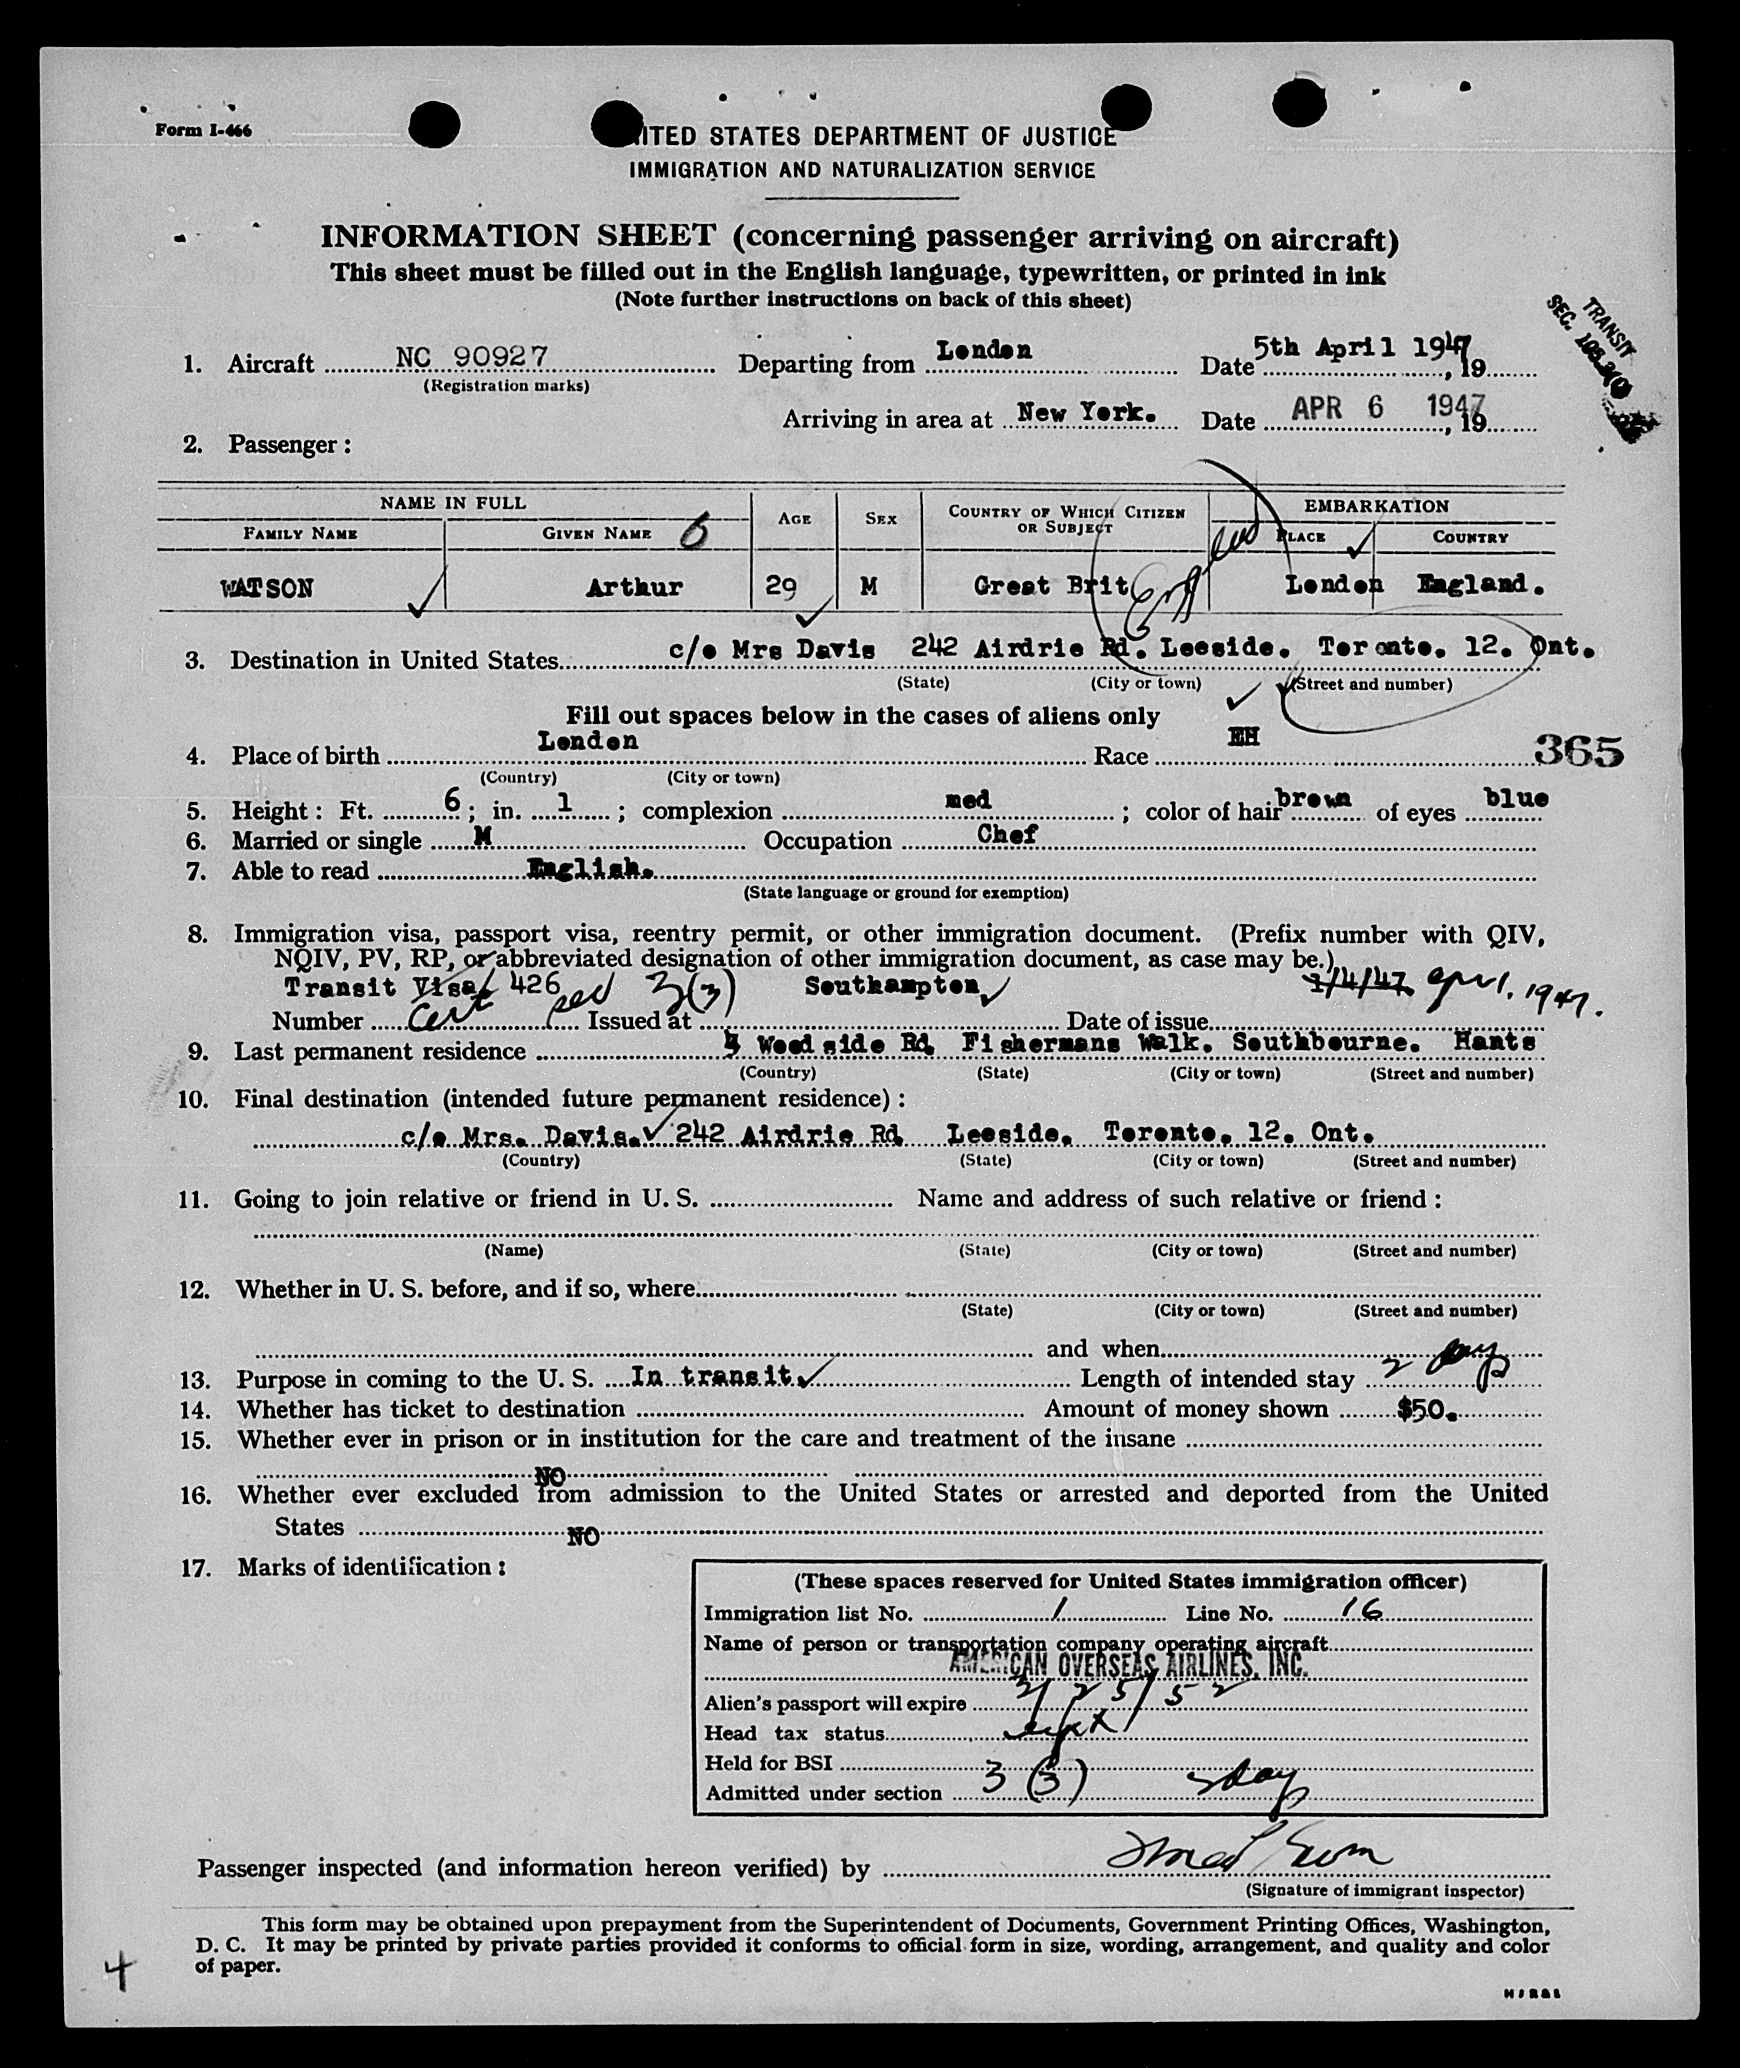 Form I-466
UNITED STATES DEPARTMENT OF JUSTICE
IMMIGRATION AND NATURALIZATION SERVICE
INFORMATION SHEET (concerning passenger arriving on aircraft)
This sheet must be filled out in the English language, typewritten, or printed in ink
(Note further instructions on back of this sheet)
TRANSIT
SEC.
1. Aircraft NC 90927 Departing from London Date 5th April 1947, 19
(Registration marks)
Arriving in area at New York. Date APR 6 1947, 19
2. Passenger:
NAME IN FULL AGE SEX COUNTRY OF WHICH CITIZEN OR SUBJECT EMBARKATION
FAMILY NAME GIVEN NAME PLACE COUNTRY
WATSON Arthur 29 M Great Brit England London England.
3. Destination in United States c/o Mrs Davis 242 Airdrie Rd. Leeside. Toronto. 12. Ont.
(State) (City or town) (Street and number)
Fill out spaces below in the cases of aliens only
4. Place of birth London Race EH 365
(Country) (City or town)
5. Height: Ft. 6; in. 1; complexion med; color of hair brown of eyes blue
6. Married or single M Occupation Chef
7. Able to read English.
(State language or ground for exemption)
8. Immigration visa, passport visa, reentry permit, or other immigration document. (Prefix number with QIV,
NQIV, PV, RP, or abbreviated designation of other immigration document, as case may be.)
Transit Visa 426 3(3) Southampton 1/4/47. Apr 1, 1947.
Number Cert Issued at Date of issue
9. Last permanent residence Woodside Rd, Fishermans Walk. Southbourne. Hants
(Country) (State) (City or town) (Street and number)
10. Final destination (intended future permanent residence):
c/o Mrs. Davis. 242 Airdrie Rd Leeside. Toronto. 12. Ont.
(Country) (State) (City or town) (Street and number)
11. Going to join relative or friend in U. S. Name and address of such relative or friend:
(Name) (State) (City or town) (Street and number)
12. Whether in U. S. before, and if so, where
(State) (City or town) (Street and number)
and when
13. Purpose in coming to the U. S. In transit Length of intended stay 2 days
14. Whether has ticket to destination Amount of money shown $50.
15. Whether ever in prison or in institution for the care and treatment of the insane
NO
16. Whether ever excluded from admission to the United States or arrested and deported from the United
States NO
17. Marks of identification:
(These spaces reserved for United States immigration officer)
Immigration list No. 1 Line No. 16
Name of person or transportation company operating aircraft
AMERICAN OVERSEAS AIRLINES, INC.
Alien's passport will expire 2/25/52
Head tax status
Held for BSI
Admitted under section 3 (3) days
Passenger inspected (and information hereon verified) by
(Signature of immigrant inspector)
This form may be obtained upon prepayment from the Superintendent of Documents, Government Printing Offices, Washington,
D. C. It may be printed by private parties provided it conforms to official form in size, wording, arrangement, and quality and color
of paper.
4